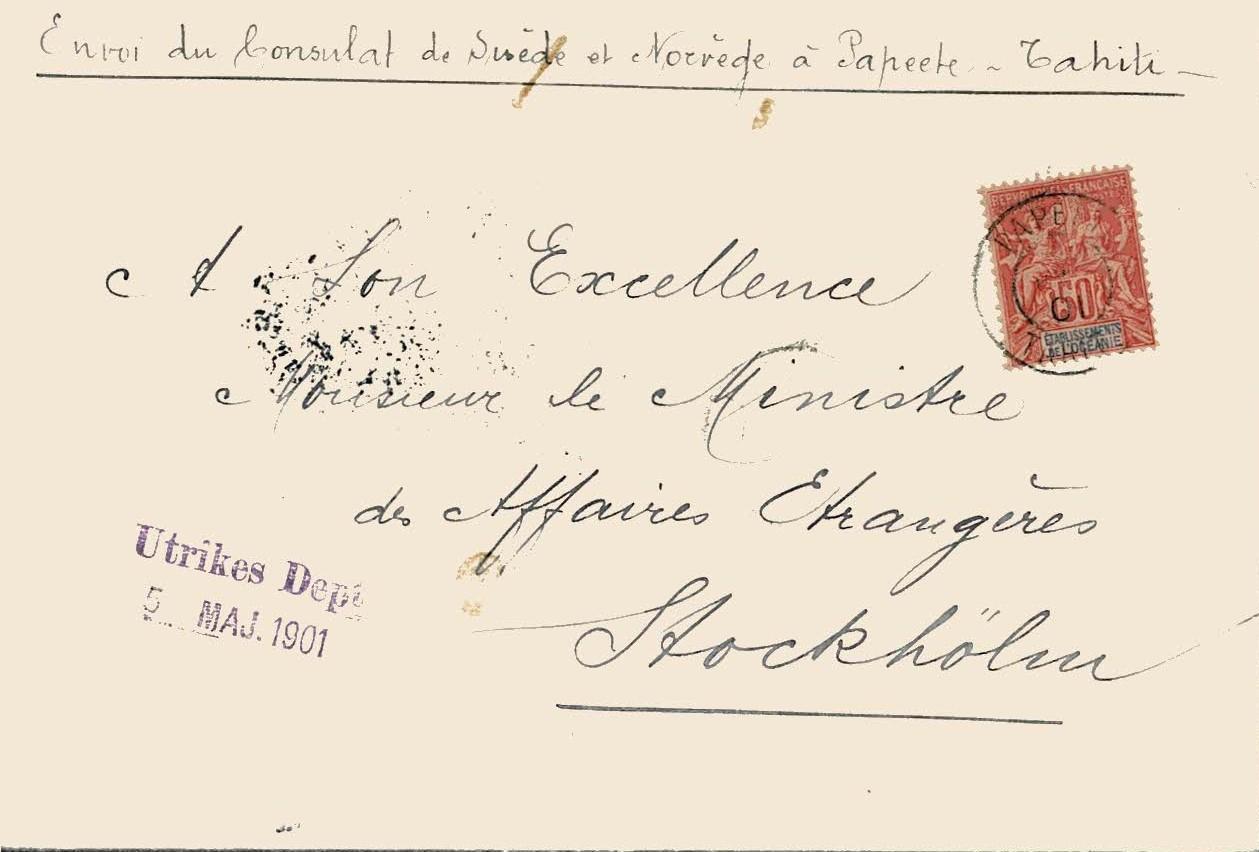 Envoi du Consulat de Suède et Norvège à Papeete - Tahiti -
REPUBLIQUE FRANÇAISE
PAPE
50
01
ETABLISSEMENTS
DE L'OCÉANIE
A Son Excellence
Monsieur le Ministre
des Affaires Etrangères
Utrikes Dept
5 MAJ. 1901
Stockhölm